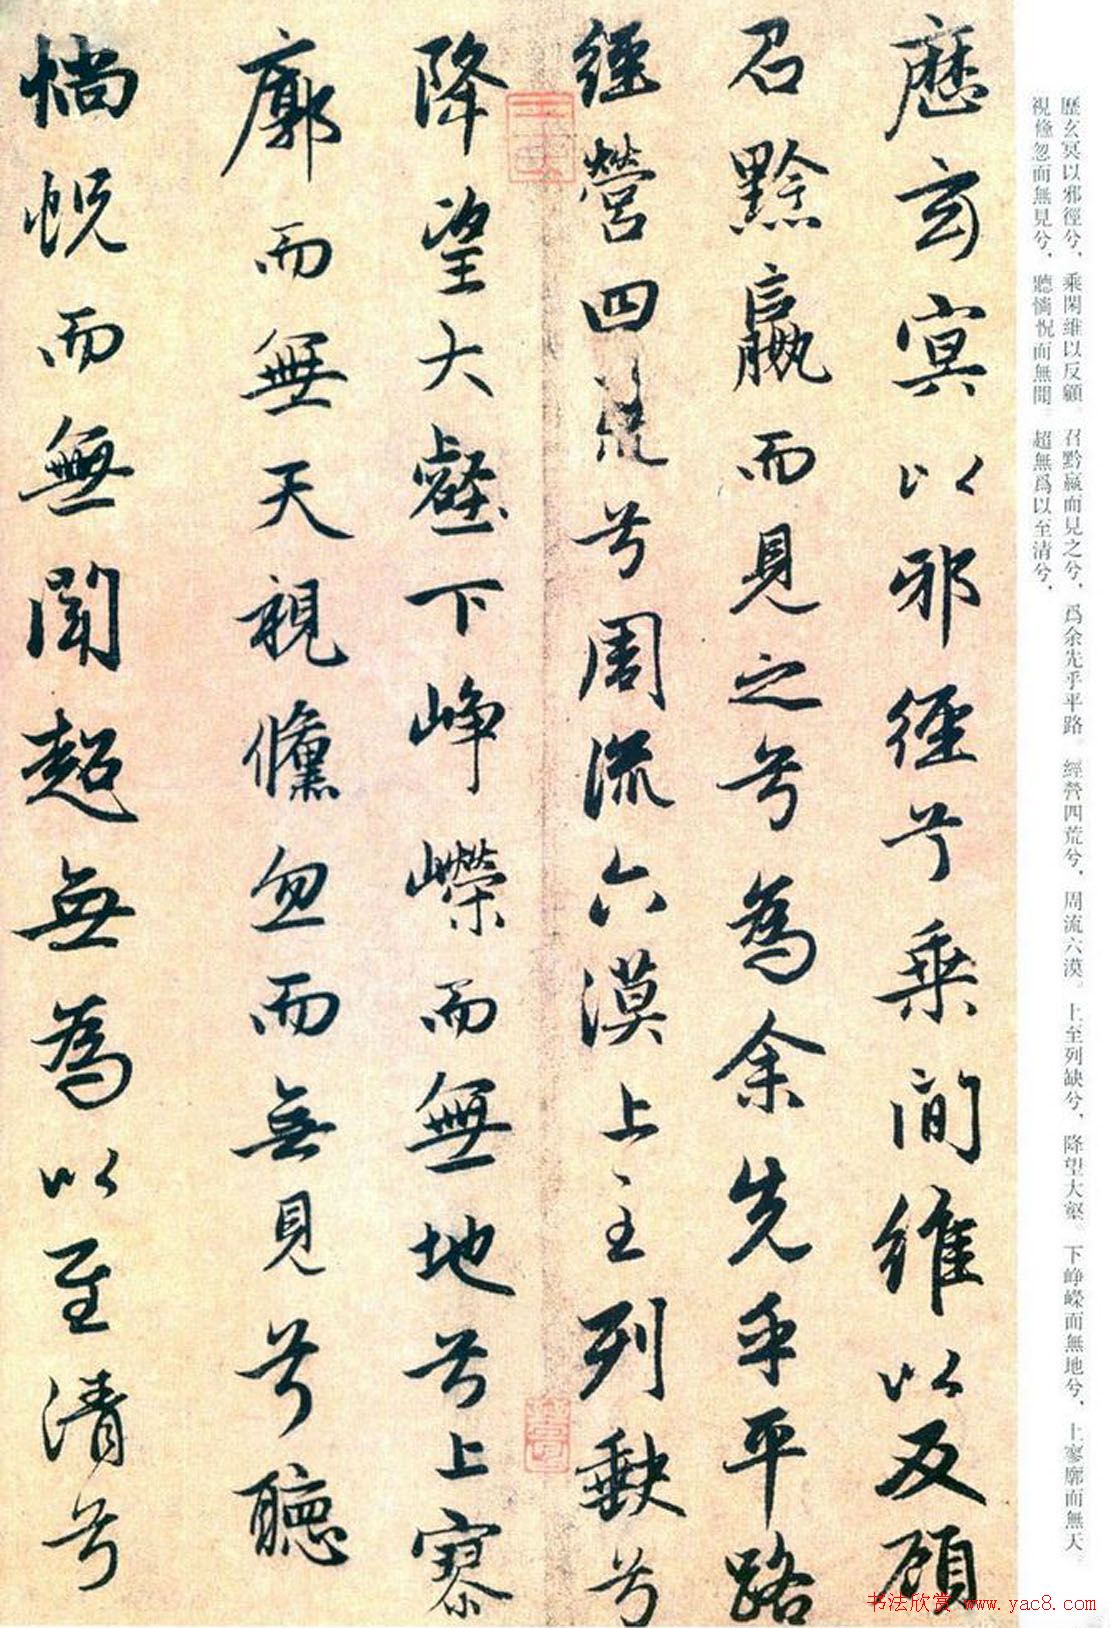 歷玄冥以邪徑兮、乘閑維以反顧。召黔嬴而見之兮、爲余先乎平路。經營四荒兮、周流六漠。上至列缺兮、降望大壑。下崢嶸而無地兮、上寥廓而無天。
視倏忽而無見兮、聽惝怳而無聞。超無爲以至清兮、
歷玄冥以邪徑兮乘間維以反顧
召黔嬴而見之兮為余先乎平路
經營四荒兮周流六漠上至列缺兮
降望大壑下崢嶸而無地兮上寥
廓而無天視儵忽而無見兮聽
惝怳而無聞超無為以至清兮
书法欣赏 www.yac8.com